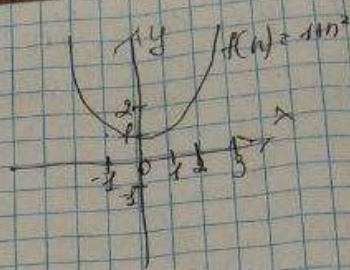 y
f(n) = 1+n²
2
1
-1 0 1 2 3
-1